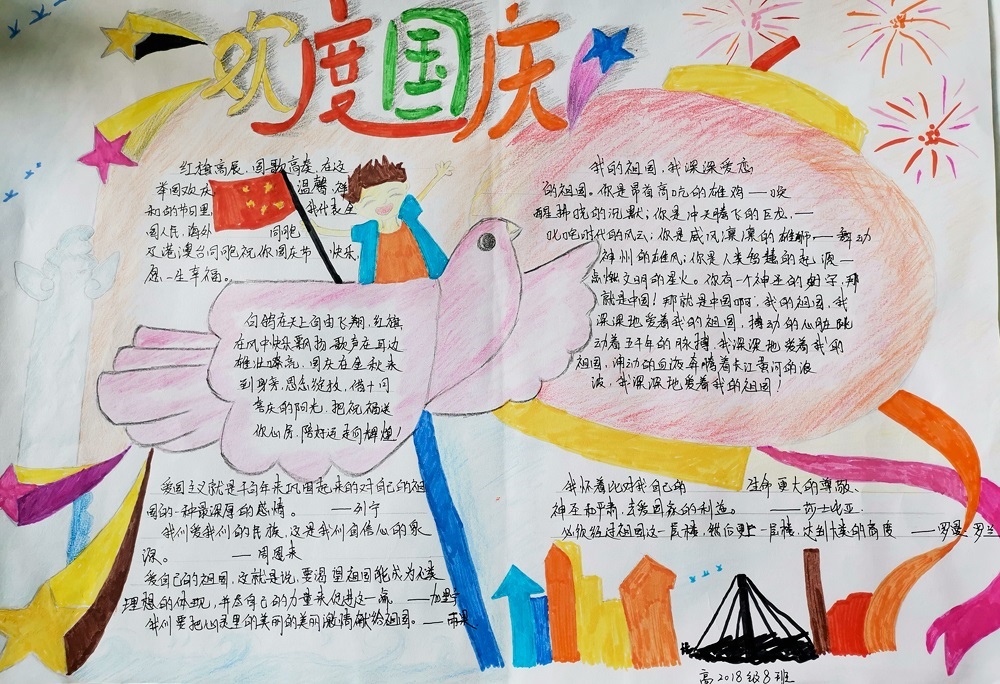 欢度国庆
红旗高展，国歌高奏，在这
举国欢庆 温馨 祥
和的节日里 我代表全
国人民，海外 同胞
及港澳台同胞祝你国庆节 快乐，
愿一生幸福。
白鸽在天上自由飞翔，红旗
在风中快乐飘扬，歌声在耳边
雄壮嘹亮，国庆在金秋来
到身旁，思念绽放，借十月
喜庆的阳光，把祝福送
你心房，陪好运走向辉煌！
我的祖国，我深深爱恋
的祖国。你是昂首高吭的雄鸡——唤
醒拂晓的沉默；你是冲天腾飞的巨龙，——
叱咤时代的风云；你是威风凛凛的雄狮——舞动
神州的雄风；你是人类智慧的起源——
点燃文明的星火。你有一个神圣的名字，那
就是中国！那就是中国啊，我的祖国，我
深深地爱着我的祖国，搏动的心脏跳
动着五千年的脉搏，我深深地爱着我的
祖国，涌动的血液奔腾着长江黄河的浪
波，我深深地爱着我的祖国！
爱国主义就是千百年来巩固起来的对自己的祖
国的一种最深厚的感情。 ——列宁
我们爱我们的民族，这是我们自信心的泉
源。 ——周恩来
爱自己的祖国，这就是说，要渴望祖国能成为人类
理想的体现，并尽自己的力量来促进这一点。——别林
我们要把心灵里的美丽的美丽激情献给祖国。——雨果
我怀着比对我自己的 生命更大的尊敬、
神圣和严肃，去爱国家的利益。 ——莎士比亚
必须经过祖国这一层楼，然后更上一层楼，达到人类的高度 ——罗曼·罗兰
高2018级8班